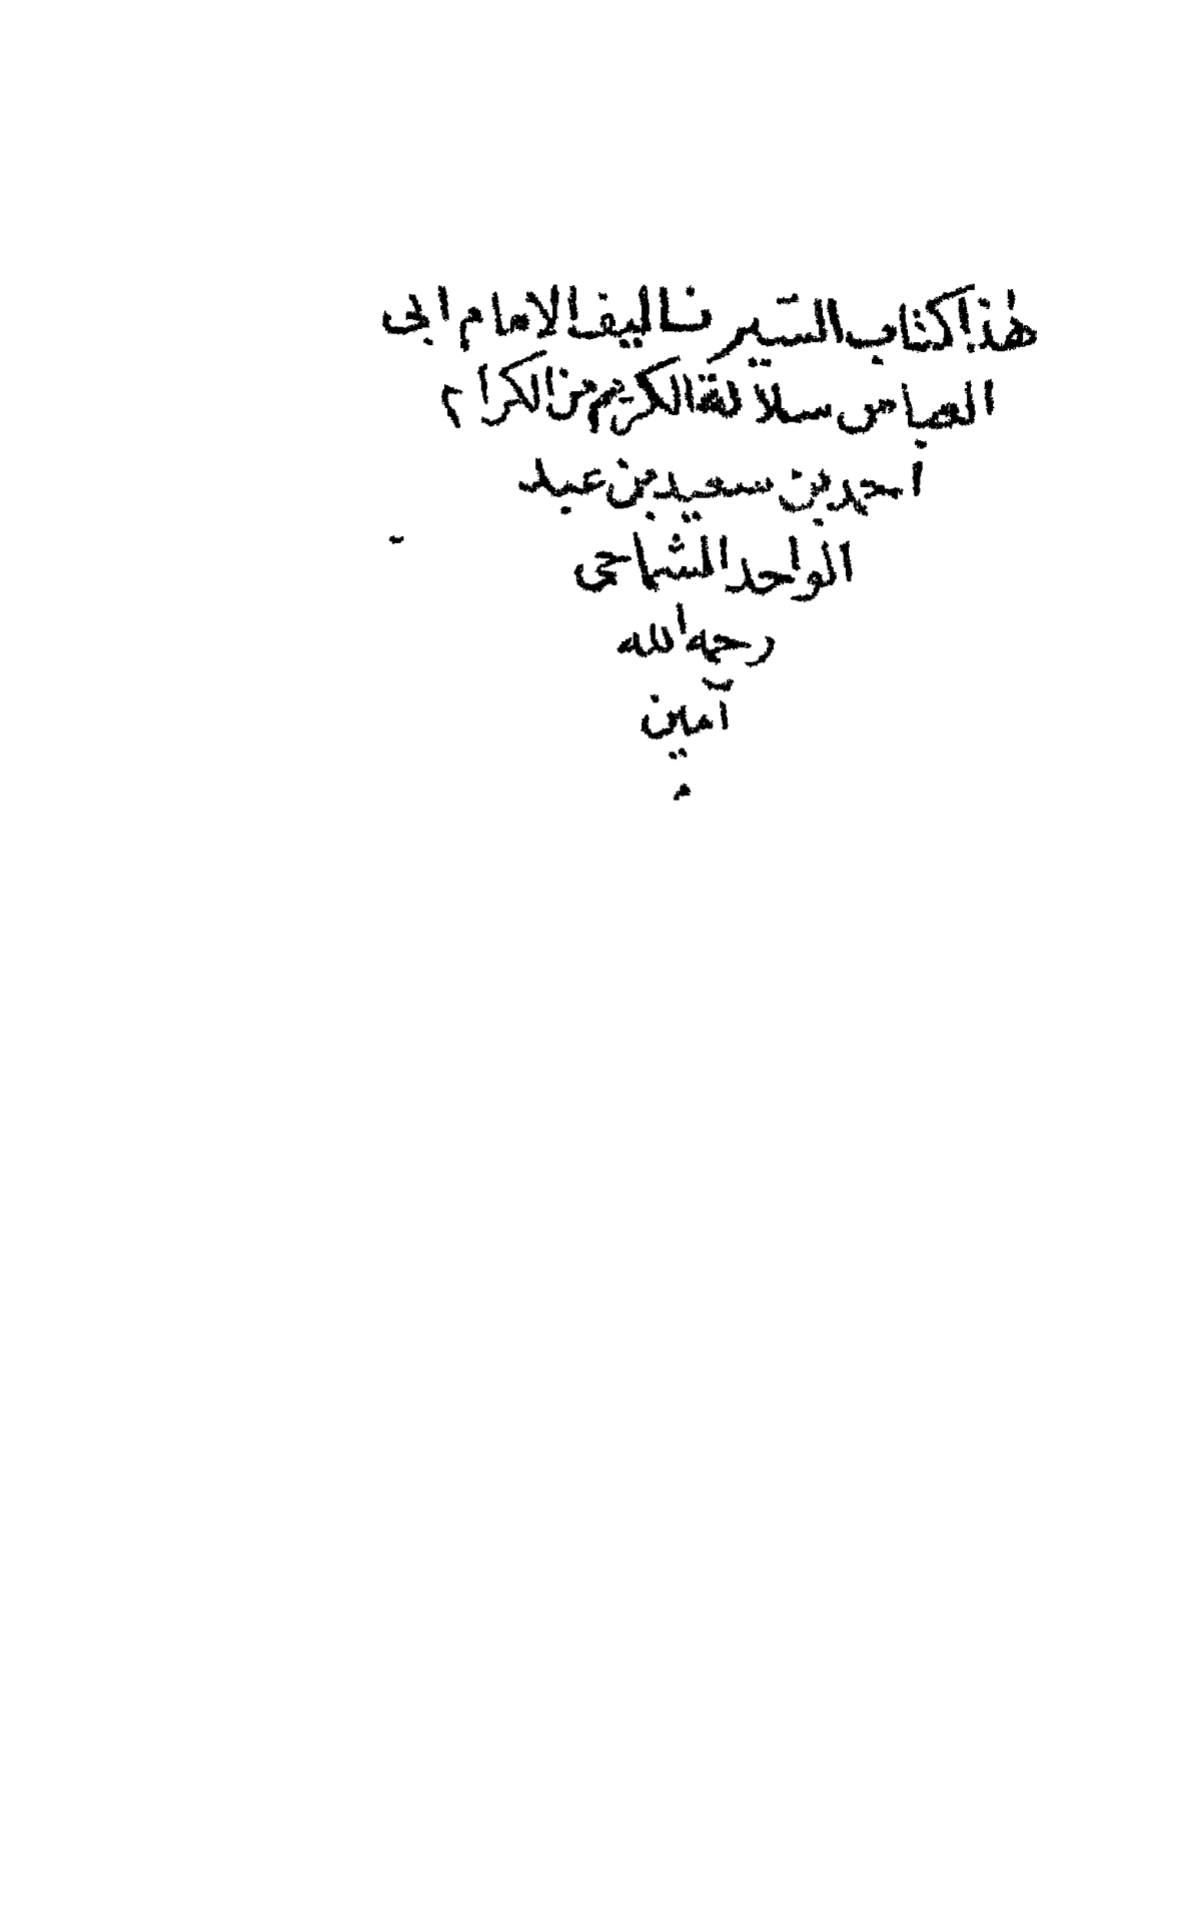 هذا كتاب السير تاليف الامام ابى
العباس سلالة الكريم من الكرام
احمد بن سعيد بن عبد
الواحد الشماحى
رحمه الله
آمين